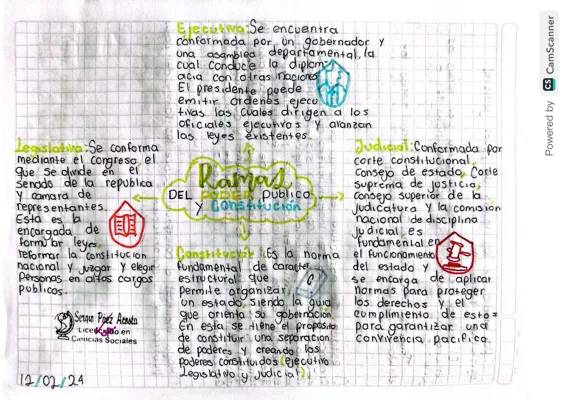 Ejecutiva: Se encuentra
conformada por un gobernador y
una asamblea departamental, la
cual conduce la diplom
acia con otras naciones
El presidente puede
emitir ordenes ejecu
tivas las cuales dirigen a los
oficiales ejecutivos y afianzan
las leyes existentes.
Legislativa: Se conforma
mediante el congreso el
que se divide en el
senado de la republica
y camara de
representantes.
Esta es la
encargada de
formular leyes,
reformar la constitucion
nacional y juzgar y elegir
personas en altos cargos
publicos.
Ramas
DEL poder Publico
y Constitución
Judicial: Conformada por
corte constitucional,
consejo de estado, Corte
suprema de justicia,
consejo superior de la
judicatura y la comision
nacional de disciplina
judicial, es
fundamental en
el funcionamiento
del estado y
se encarga de aplicar
normas para proteger
los derechos y el
cumplimiento de estos
para garantizar una
convivencia pacifica.
Constitución: Es la norma
fundamental de caracter
estructural que
permite organizar
un estado, siendo la guia
que orienta su gobernación
En esta se tiene el proposito
de constituir una separación
de poderes y creando los
poderes constituidos (ejecutivo
legislativo y judicial).
Licenciado en
Ciencias Sociales
12/02/24
Powered by CS CamScanner